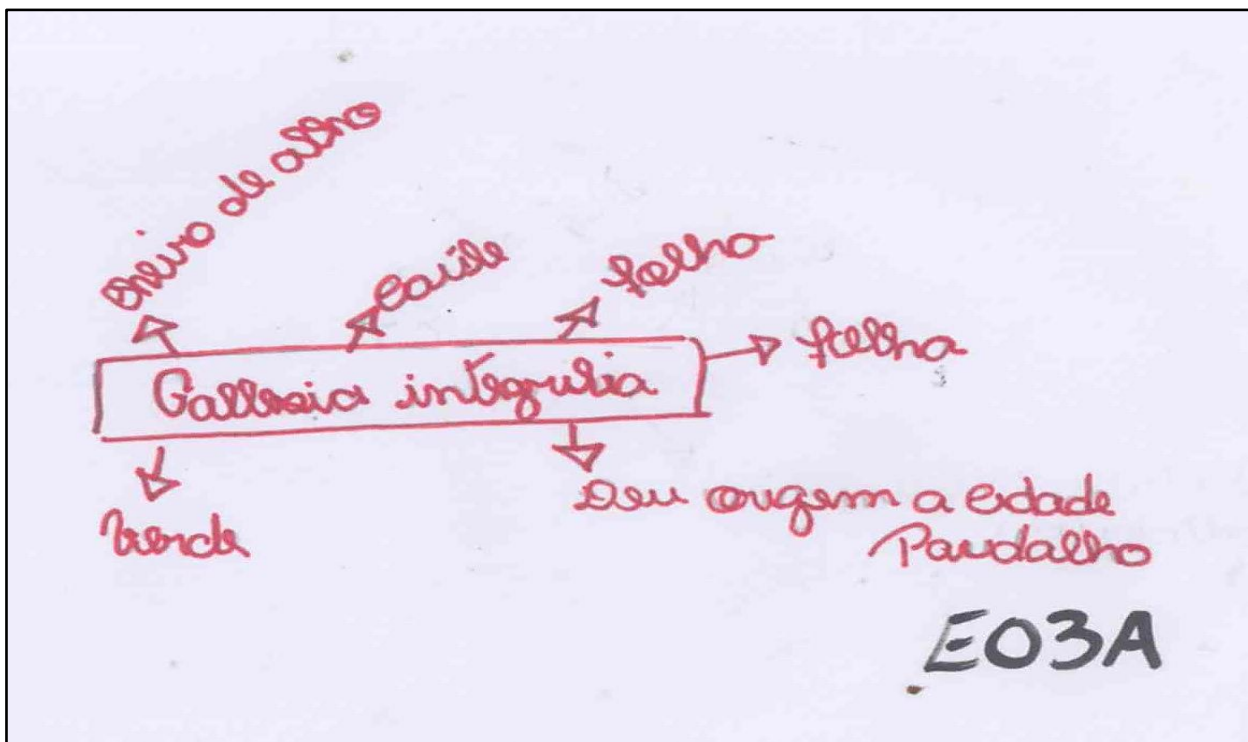 cheiro de alho
Caúle
folho
folha
Gallesia integrulia
Verde
Deu origem a cidade
Paudalho
E03A